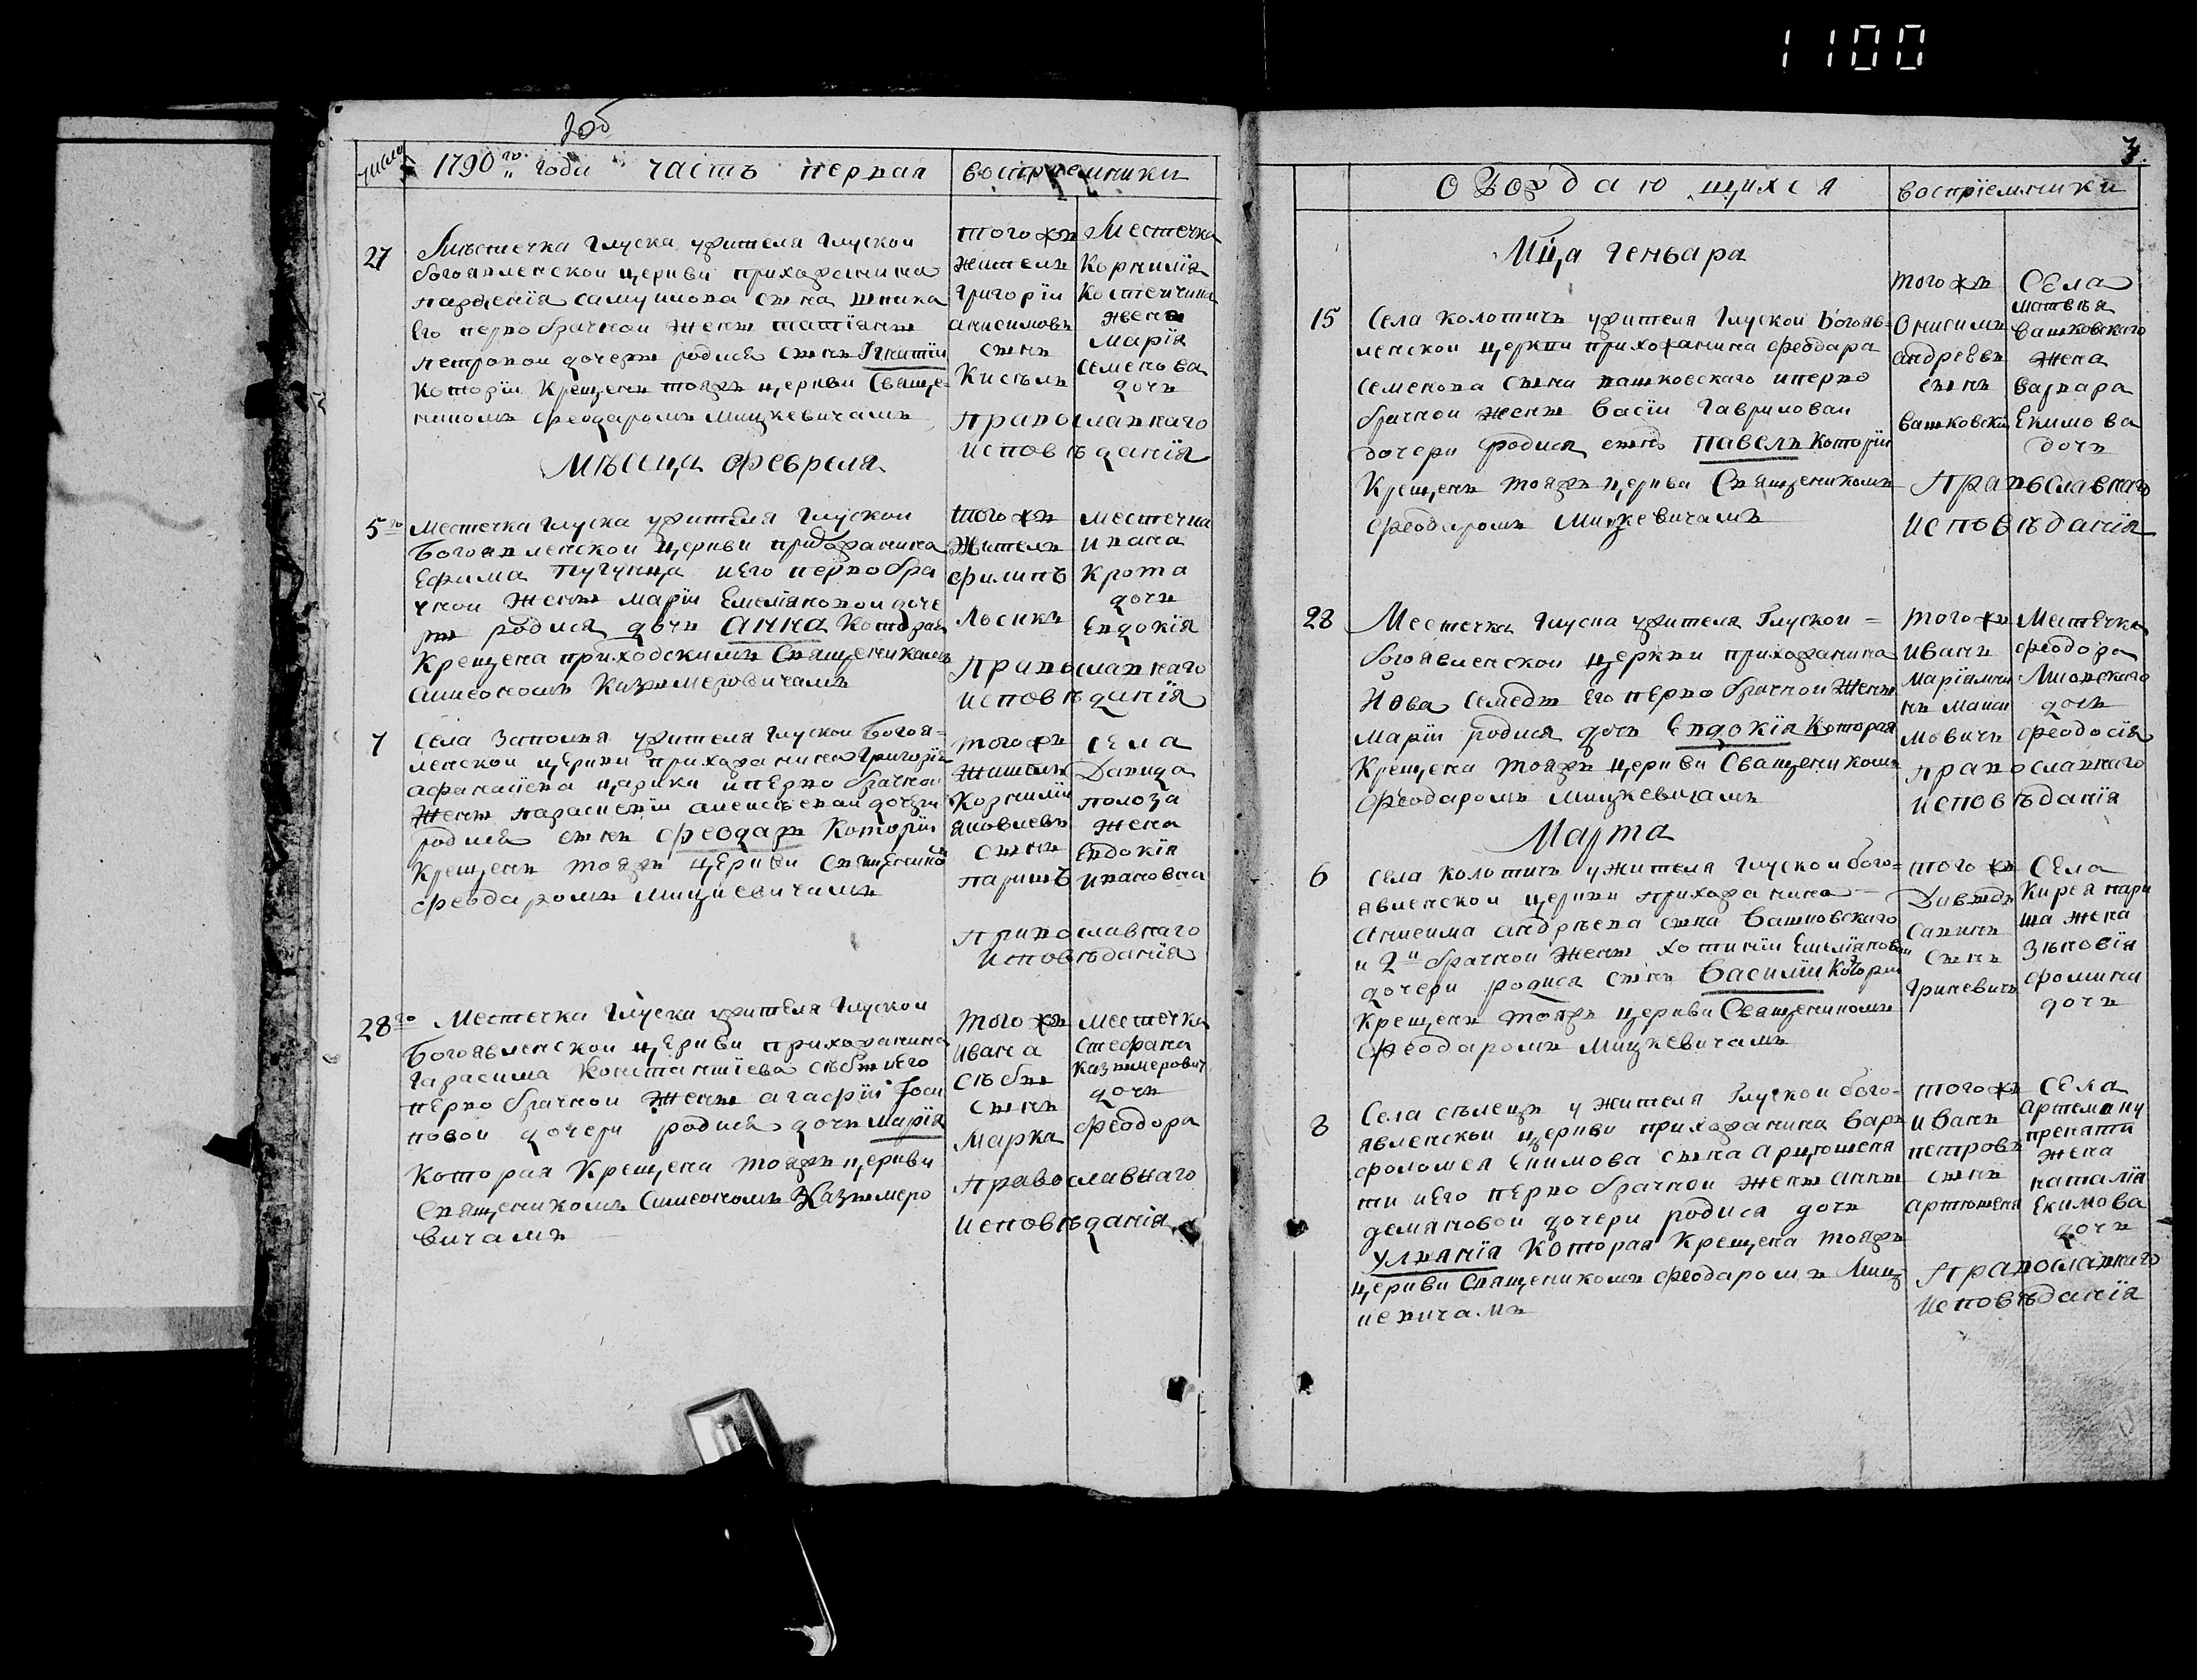 1100
2об
числа
1790го года часть первая
восприемники
27
Мѣстечка Глуска ужителя Глускои
богоявленскои церкви прихожанина
его первобрачнои женѣ татіанѣ
петровои дочерѣ родися сынъ Игнатіи
Которіи Крещенъ тояжъ церкви Свяще
никомъ Феодаромъ Мицкевичамъ
тогожъ
жителъ
Григоріи
анисимовъ
сынъ
Кисѣль
Местечка
Корнилія
жена
Марія
Семенова
дочь
православнаго
исповѣданія
Мѣсеца Февраля
5го
Местечка Глуска ужителя Глускои
Богоявленскои Церкви прихожанина
Ефима иЕго первобра
чнои женѣ Маріи Емеліяновои доче
рѣ родися дочь Анна Которая
Крещена приходскимъ Священикамъ
Симеономъ Казимеровичамъ
тогожъ
Жителъ
Филипъ
Лосикъ
местечка
Ивана
Крота
дочь
Евдокія
Православнаго
исповѣданія
7
Села Заполья ужителя Глускои Богояв=
ленскои церкви прихожанина Григорія
афанасіева царика иперво брачнои
Женѣ параскевіи алексѣевои дочери
родися сынъ Феодаръ Которіи
Крещенъ тояжъ Церкви Священико
Феодаромъ Мицкевичамъ
тогожъ
Жителъ
Корниліи
Яковлевъ
сынъ
паришъ
села
Давида
полоза
жена
Евдокія
Ивановна
Православнаго
Исповѣданія
28го
Местечка Глуска ужителя Глускои
Богоявленскои Церкви прихожанина
Гарасима Константіева иЕго
перво брачнои Женѣ агафіи
повои дочери родися дочь Марія
Которая Крещена тояжъ церкви
Священикомъ Симеономъ Казимеро
вичамъ
тогожъ
Ивана
сынъ
Марка
местечка
Стефана
Казимерович
дочь
Феодора
Православнаго
исповѣданія
3.
О Рождающихся
восприемники
Мца Геньвара
15
Села Колотичъ ужителя Глускои Богояв=
ленскои церкви прихожанина Феодара
Семенова сына вашковскаго иперво
брачнои женѣ Васіи Гавриловаи
дочери родися сынъ Павелъ Которіи
Крещенъ тояжъ церкви Священикомъ
Феодаромъ Мицкевичамъ
тогожъ
Онисимъ
андреевъ
сынъ
Вашковскіи
Села
Матвѣя
Вашковскаго
жена
варвара
Екимова
дочь
Православнаго
исповѣданія
28
Местечка Глуска ужителя Глускои =
богоявленскои церкви прихожанина
Иова его перво брачнои Женѣ
Маріи родися дочь Евдокія Которая
Крещена тояжъ церкви Священикомъ
Феодаромъ Мицкевичамъ
тогожъ
Иванъ
мовичъ
Местечка
Феодора
дочь
Феодосія
православнаго
исповѣданія
Марта
6
Села Колотичъ ужителя Глускои бого=
явленскои церкви прихожанина
Анисима Андрѣева сына Вашковскаго
и 2и брачнои Женѣ Емеліяновои
дочери родися сынъ Василіи Которіи
Крещенъ тояжъ церкви Священикомъ
Феодаромъ Мицкевичамъ
тогожъ
Давыдъ
Савинъ
сынъ
Гриневичъ
Села
Кирея пари
ша жена
Зѣновія
Фомина
дочь
8
Села сѣлецъ ужителя Глускои бого-
явленскои церкви прихожанина Вар
фоломея Екимова сына Арцюшеня
ти иЕго перво брачнои Женѣ аннѣ
демяновои дочери родися дочь
Улянія Которая Крещена тояжъ
церкви Священикомъ Феодаромъ Миц
кевичамъ
тогожъ
Иванъ
петровъ
сынъ
Артюшеня
Села
жена
наталія
Екимова
дочь
Православнаго
исповѣданія